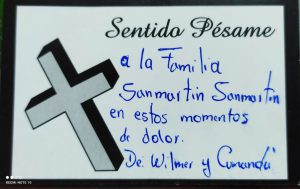 Sentido Pésame
a la Familia
Sanmartin Sanmartin
en estos momentos
de dolor.
De: Wilmer y Cumandá
REDMI NOTE 10